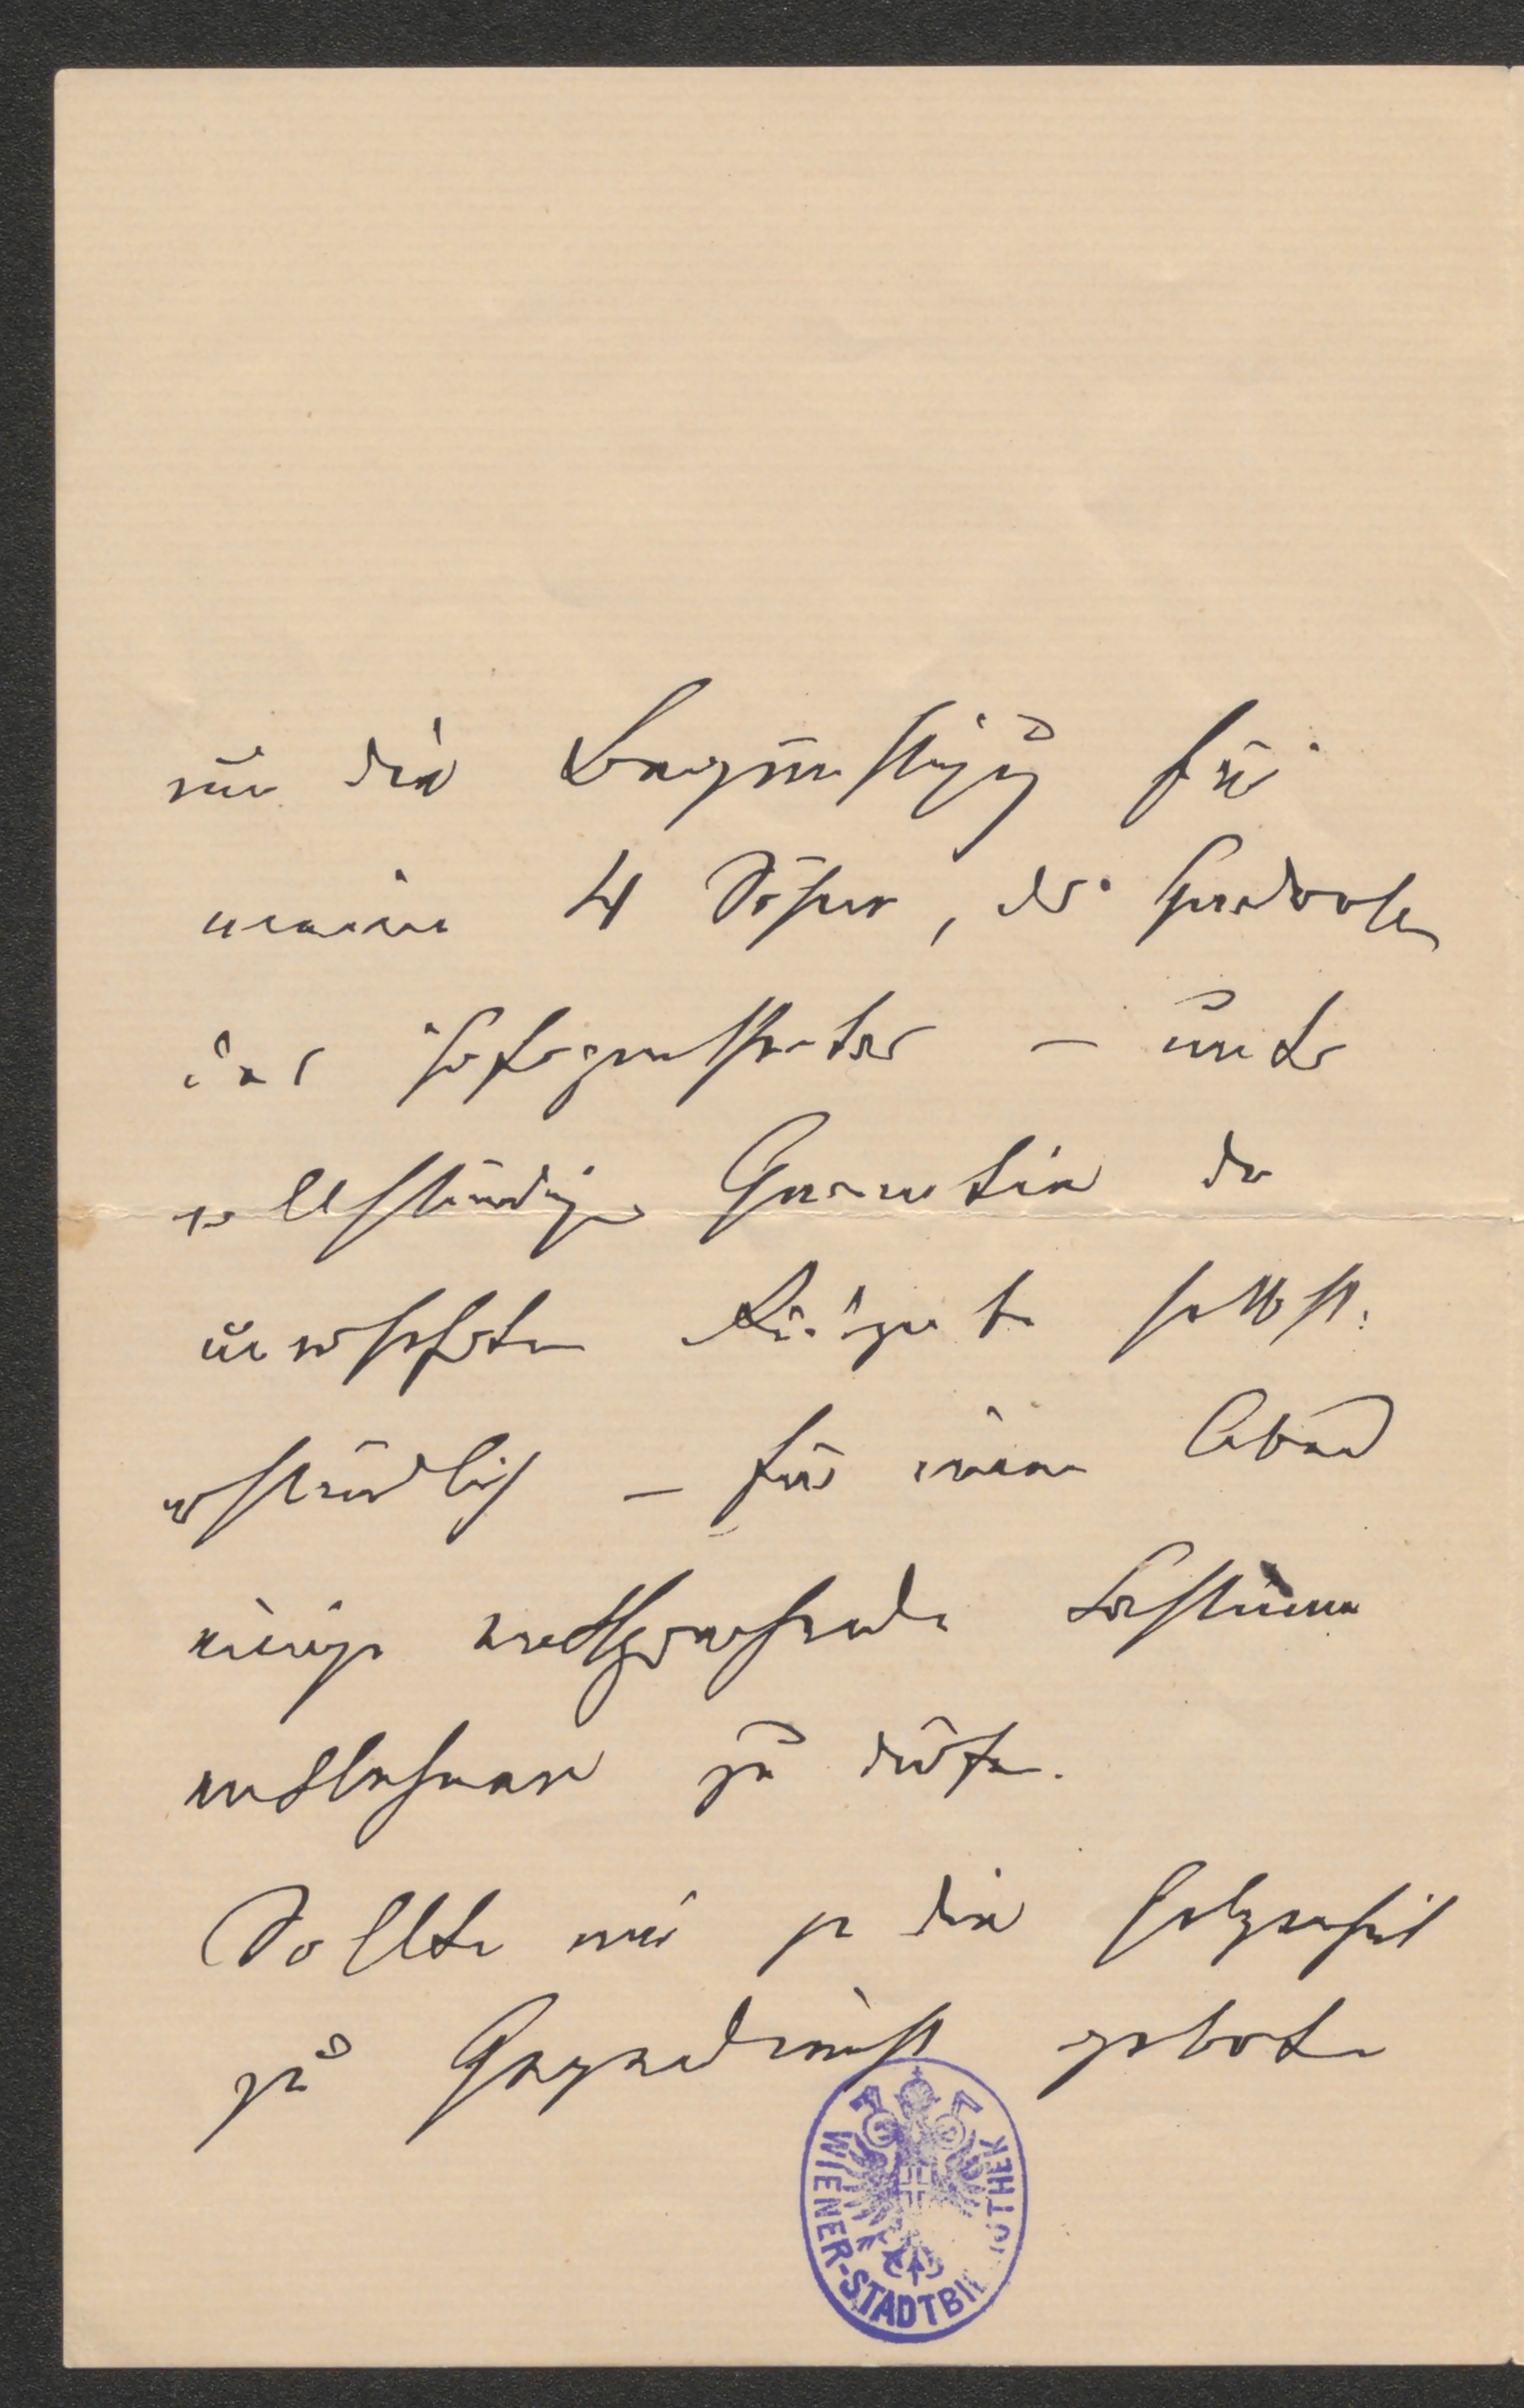 um die Begünstigung für
meine 4 Söhne, der Garderobe
des Hofoperntheater – unter
vollständiger Garantie der
unversehrten Rückgabe selbst-
verständlich – für einen Abend
einige entsprechende Costüme
entlehnen zu dürfen.
Sollte mir je die Gelegenheit
zu Gegendienst geboten
WIENER-STADTBIBLIOTHEK